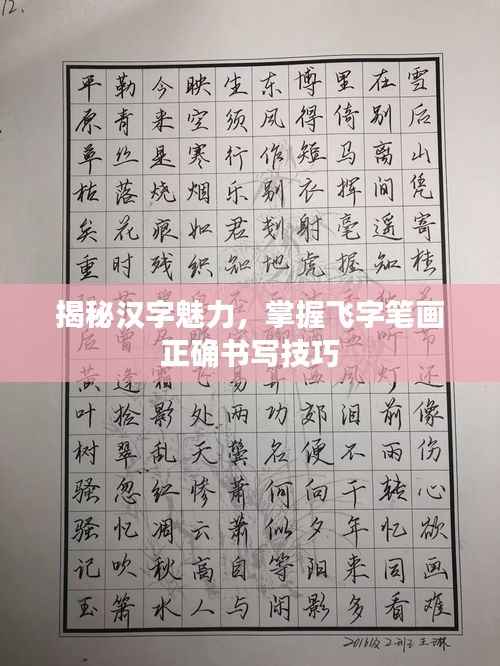 揭秘汉字魅力，掌握飞字笔画
正确书写技巧
12.
雪后山凭寄桂节还像伤心欲画难
在别离间遥知前雨转忆回看
里倚马挥毫握泪不干年来多
博得短衣射虎郊便向夕阳影
东风作别划地算功名何似等闲
生须行乐君知易两鬓萧萧自与
映空寒烟如织飞处天惨云高人
今来是烧痕残霜影乱红凋秋水
勒青丝落花时曾逢拾翠忽忆吹箫
平原草枯矣重后黄叶树骚骚记玉